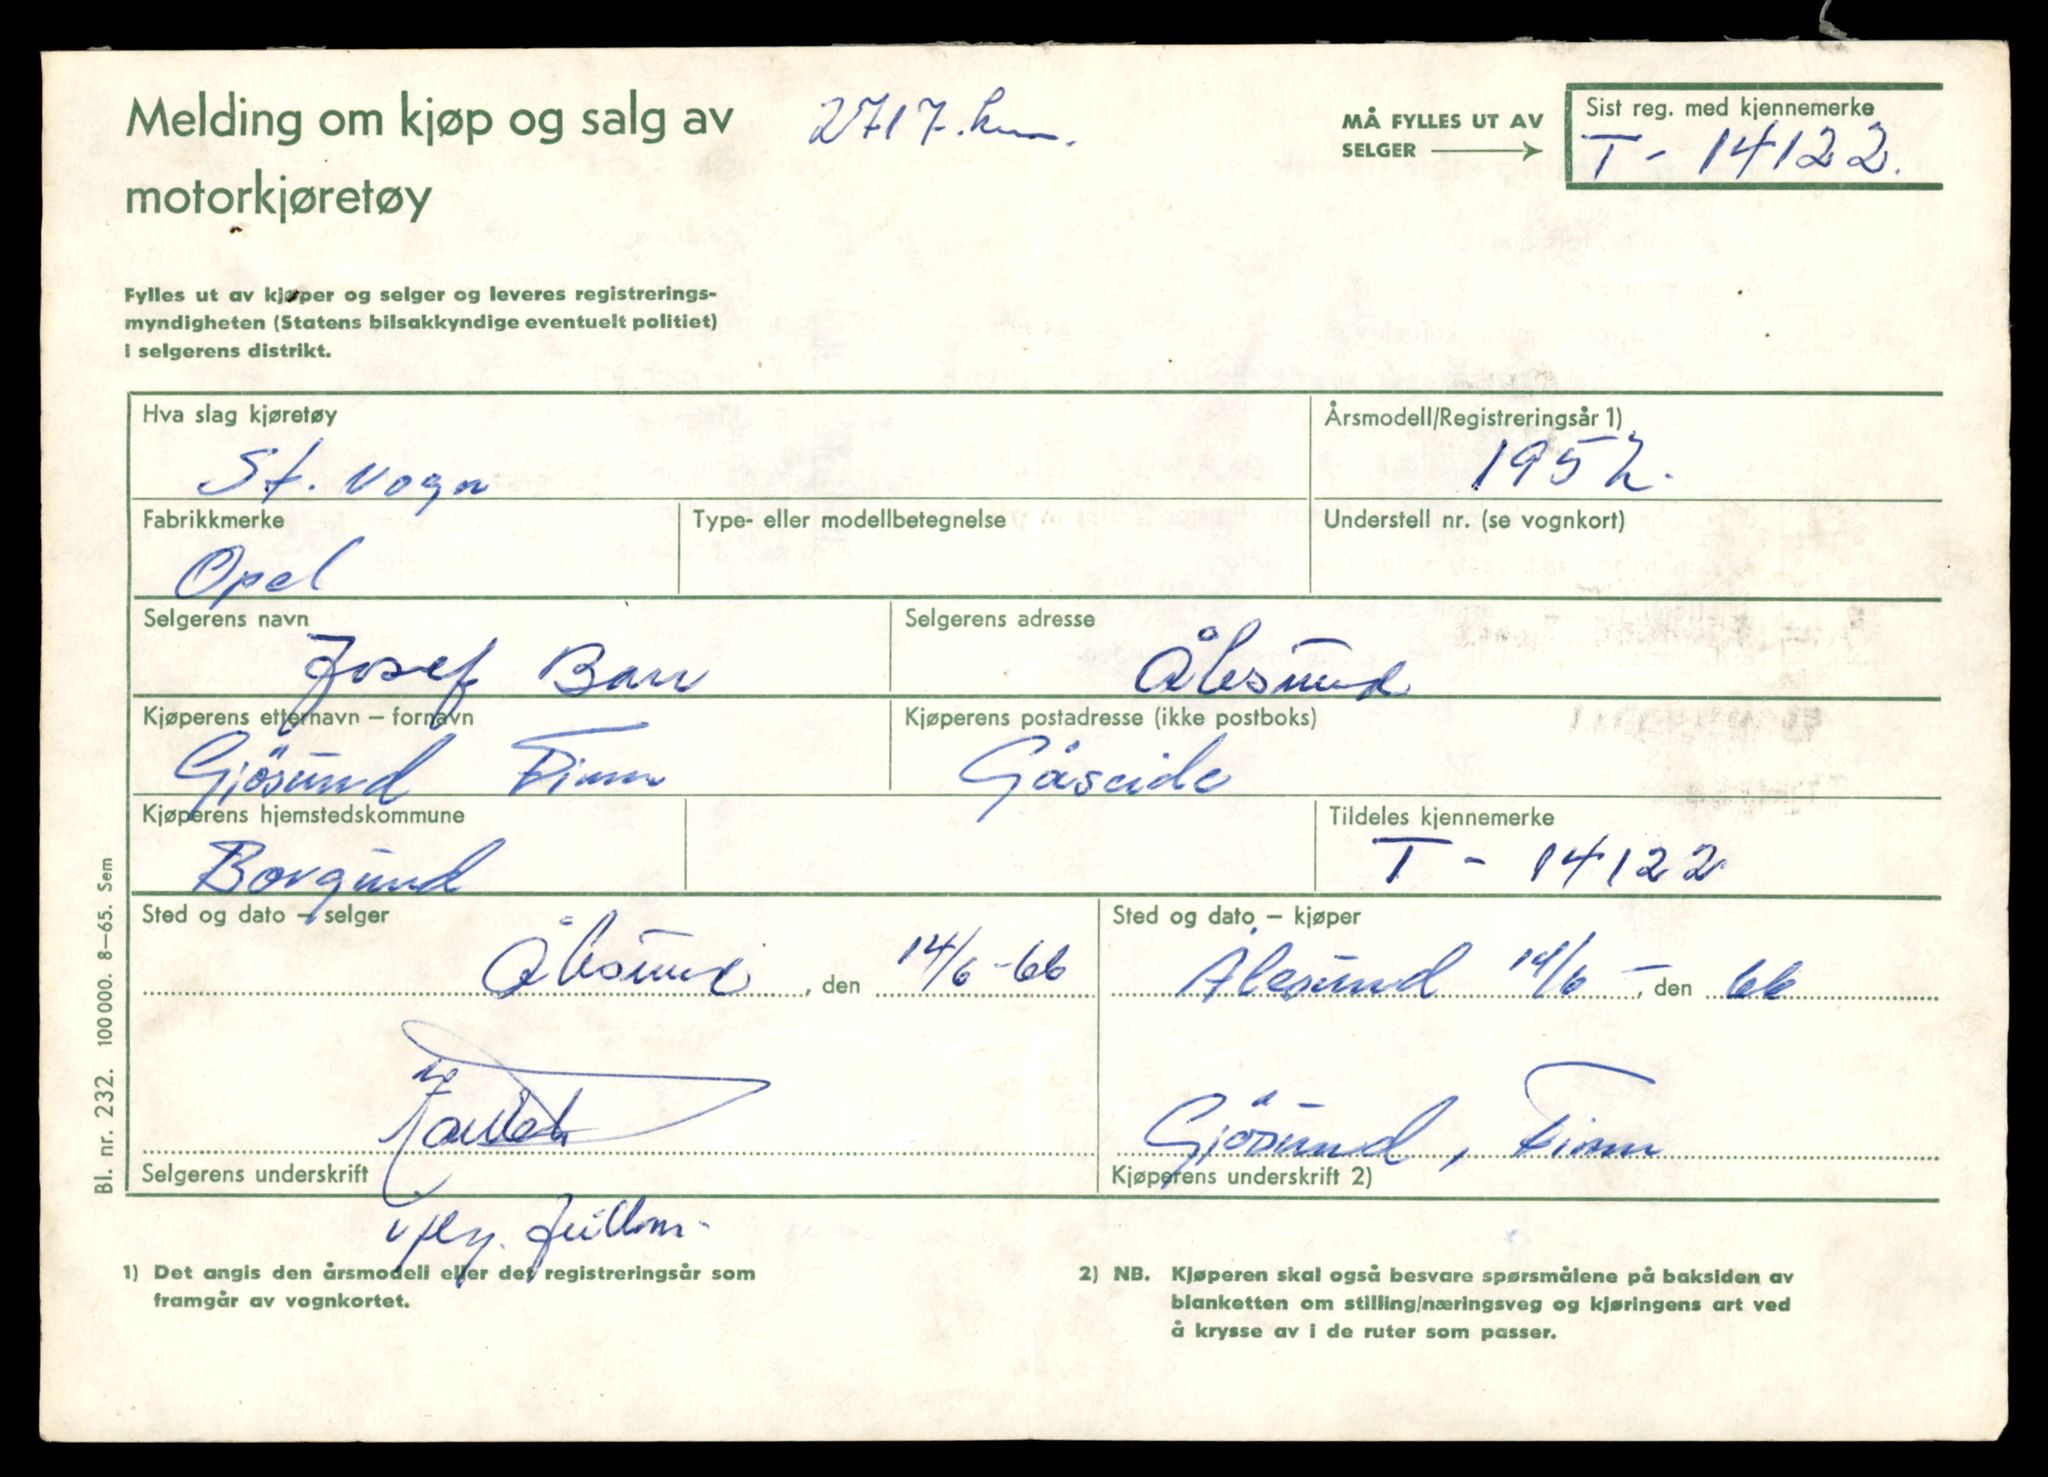 Melding om kjøp og salg av
motorkjøretøy
2717.
MÅ FYLLES UT AV
SELGER
Sist reg. med kjennemerke
T - 14122.
Fylles ut av kjøper og selger og leveres registrerings-
myndigheten (Statens bilsakkyndige eventuelt politiet)
i selgerens distrikt.
Hva slag kjøretøy
St. vogn
Årsmodell/Registreringsår 1)
1952.
Fabrikkmerke
Opel
Type- eller modellbetegnelse
Understell nr. (se vognkort)
Selgerens navn
Josef
Selgerens adresse
Ålesund
Kjøperens etternavn – fornavn
Gjösund Finn
Kjøperens postadresse (ikke postboks)
Gåseide
Kjøperens hjemstedskommune
Borgund
Tildeles kjennemerke
T - 14122
Sted og dato – selger
Ålesund, den 14/6-66
Sted og dato – kjøper
Ålesund 14/6 –, den 66
Selgerens underskrift
Gjösund, Finn
Kjøperens underskrift 2)
1) Det angis den årsmodell eller det registreringsår som
framgår av vognkortet.
2) NB. Kjøperen skal også besvare spørsmålene på baksiden av
blanketten om stilling/næringsveg og kjøringens art ved
å krysse av i de ruter som passer.
Bl. nr. 232. 100 000. 8–65. Sem